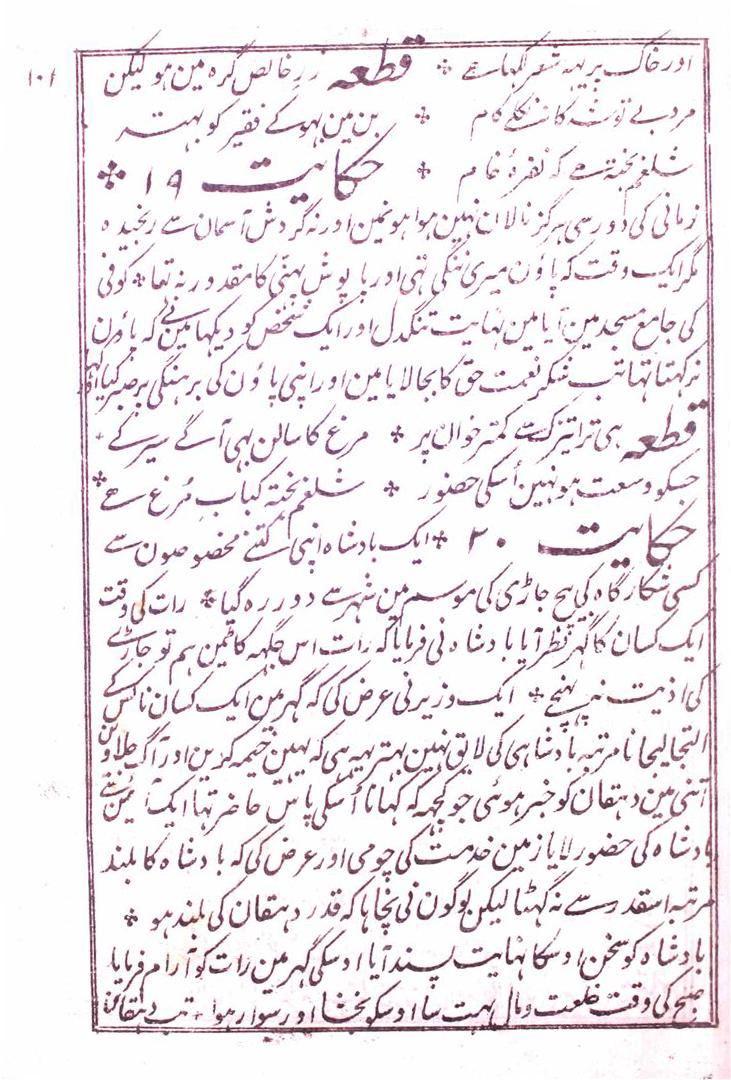 ۱۰۱
اور خاک پر یہہ شعر لکہا ہے ⁘ قطعہ زر خالص گرہ مین ہو لیکن
مرد بے توشہ کا نہ نکلے کام ⁘ بن مین بہوکے فقیر کو بہتر
شلغم پختہ ہے کہ نقرۂ خام ⁘ حکایت ۱۹ ⁘
زمانی کی دور سی ہرگز نالان نہین ہوا ہونمین اور نہ گردش آسمان سے رنجیدہ
مگر ایک وقت کہ پاؤن میری ننگی تہی اور پاپوش پہنّی کا مقدور نہ تہا ⁘ کوفی
کی جامع مسجد مین آیا مین نہایت تنگدل اور ایک شخص کو دیکہا مین نے کہ پاؤن
نہ رکہتا تہا تب شکر نعمت حق کا بجا لایا مین اور اپنی پاؤن کی برہنگی پر صبر کیا
قطعہ ہی ترا تیزک سے کمتر خوان پر ⁘ مرغ کا سالن بہی آگے سیر کے
جسکو وسعت ہو نہین اُسکی حضور ⁘ شلغم پختہ کباب مُرغ ہے ⁘
حکایت ۲۰ ⁘ ایک بادشاہ اپنی کتنے مخصوصون سے
کسی شکار گاہ کی بیچ جاڑی کی موسم مین شہر سے دور رہ گیا ⁘ رات کی وقت
ایک کسان کا گہر نظر آیا بادشاہ نی فرمایا کہ رات اس جگہہ کاٹین ہم تو جاڑے
کی اذیت نہ پہنچے ⁘ ایک وزیر نی عرض کی کہ گہر مین ایک کسان ناکس کے
التجا لیجانا مرتبہ بادشاہی کی لایق نہین بہتر یہہ ہی کہ یہین خیمہ کرین اور آگ جلاوین
اتنی مین دہقان کو خبر ہوئی جو کچہہ کہ کہانا اُسکی پاس حاضر تہا ایک آئین سے
بادشاہ کی حضور لایا زمین خدمت کی چومی اور عرض کی کہ بادشاہ کا بلند
مرتبہ اسقدر سے نہ گہٹتا لیکن لوگون نی نچاہا کہ قدر دہقان کی بلند ہو ⁘
بادشاہ کو سخن اوسکا نہایت پسند آیا اوسکی گہر مین رات کو آرام فرمایا
صبح کی وقت خلعت و مال بہت سا اوسکو بخشا اور سوار ہوا ⁘ تب دہقان